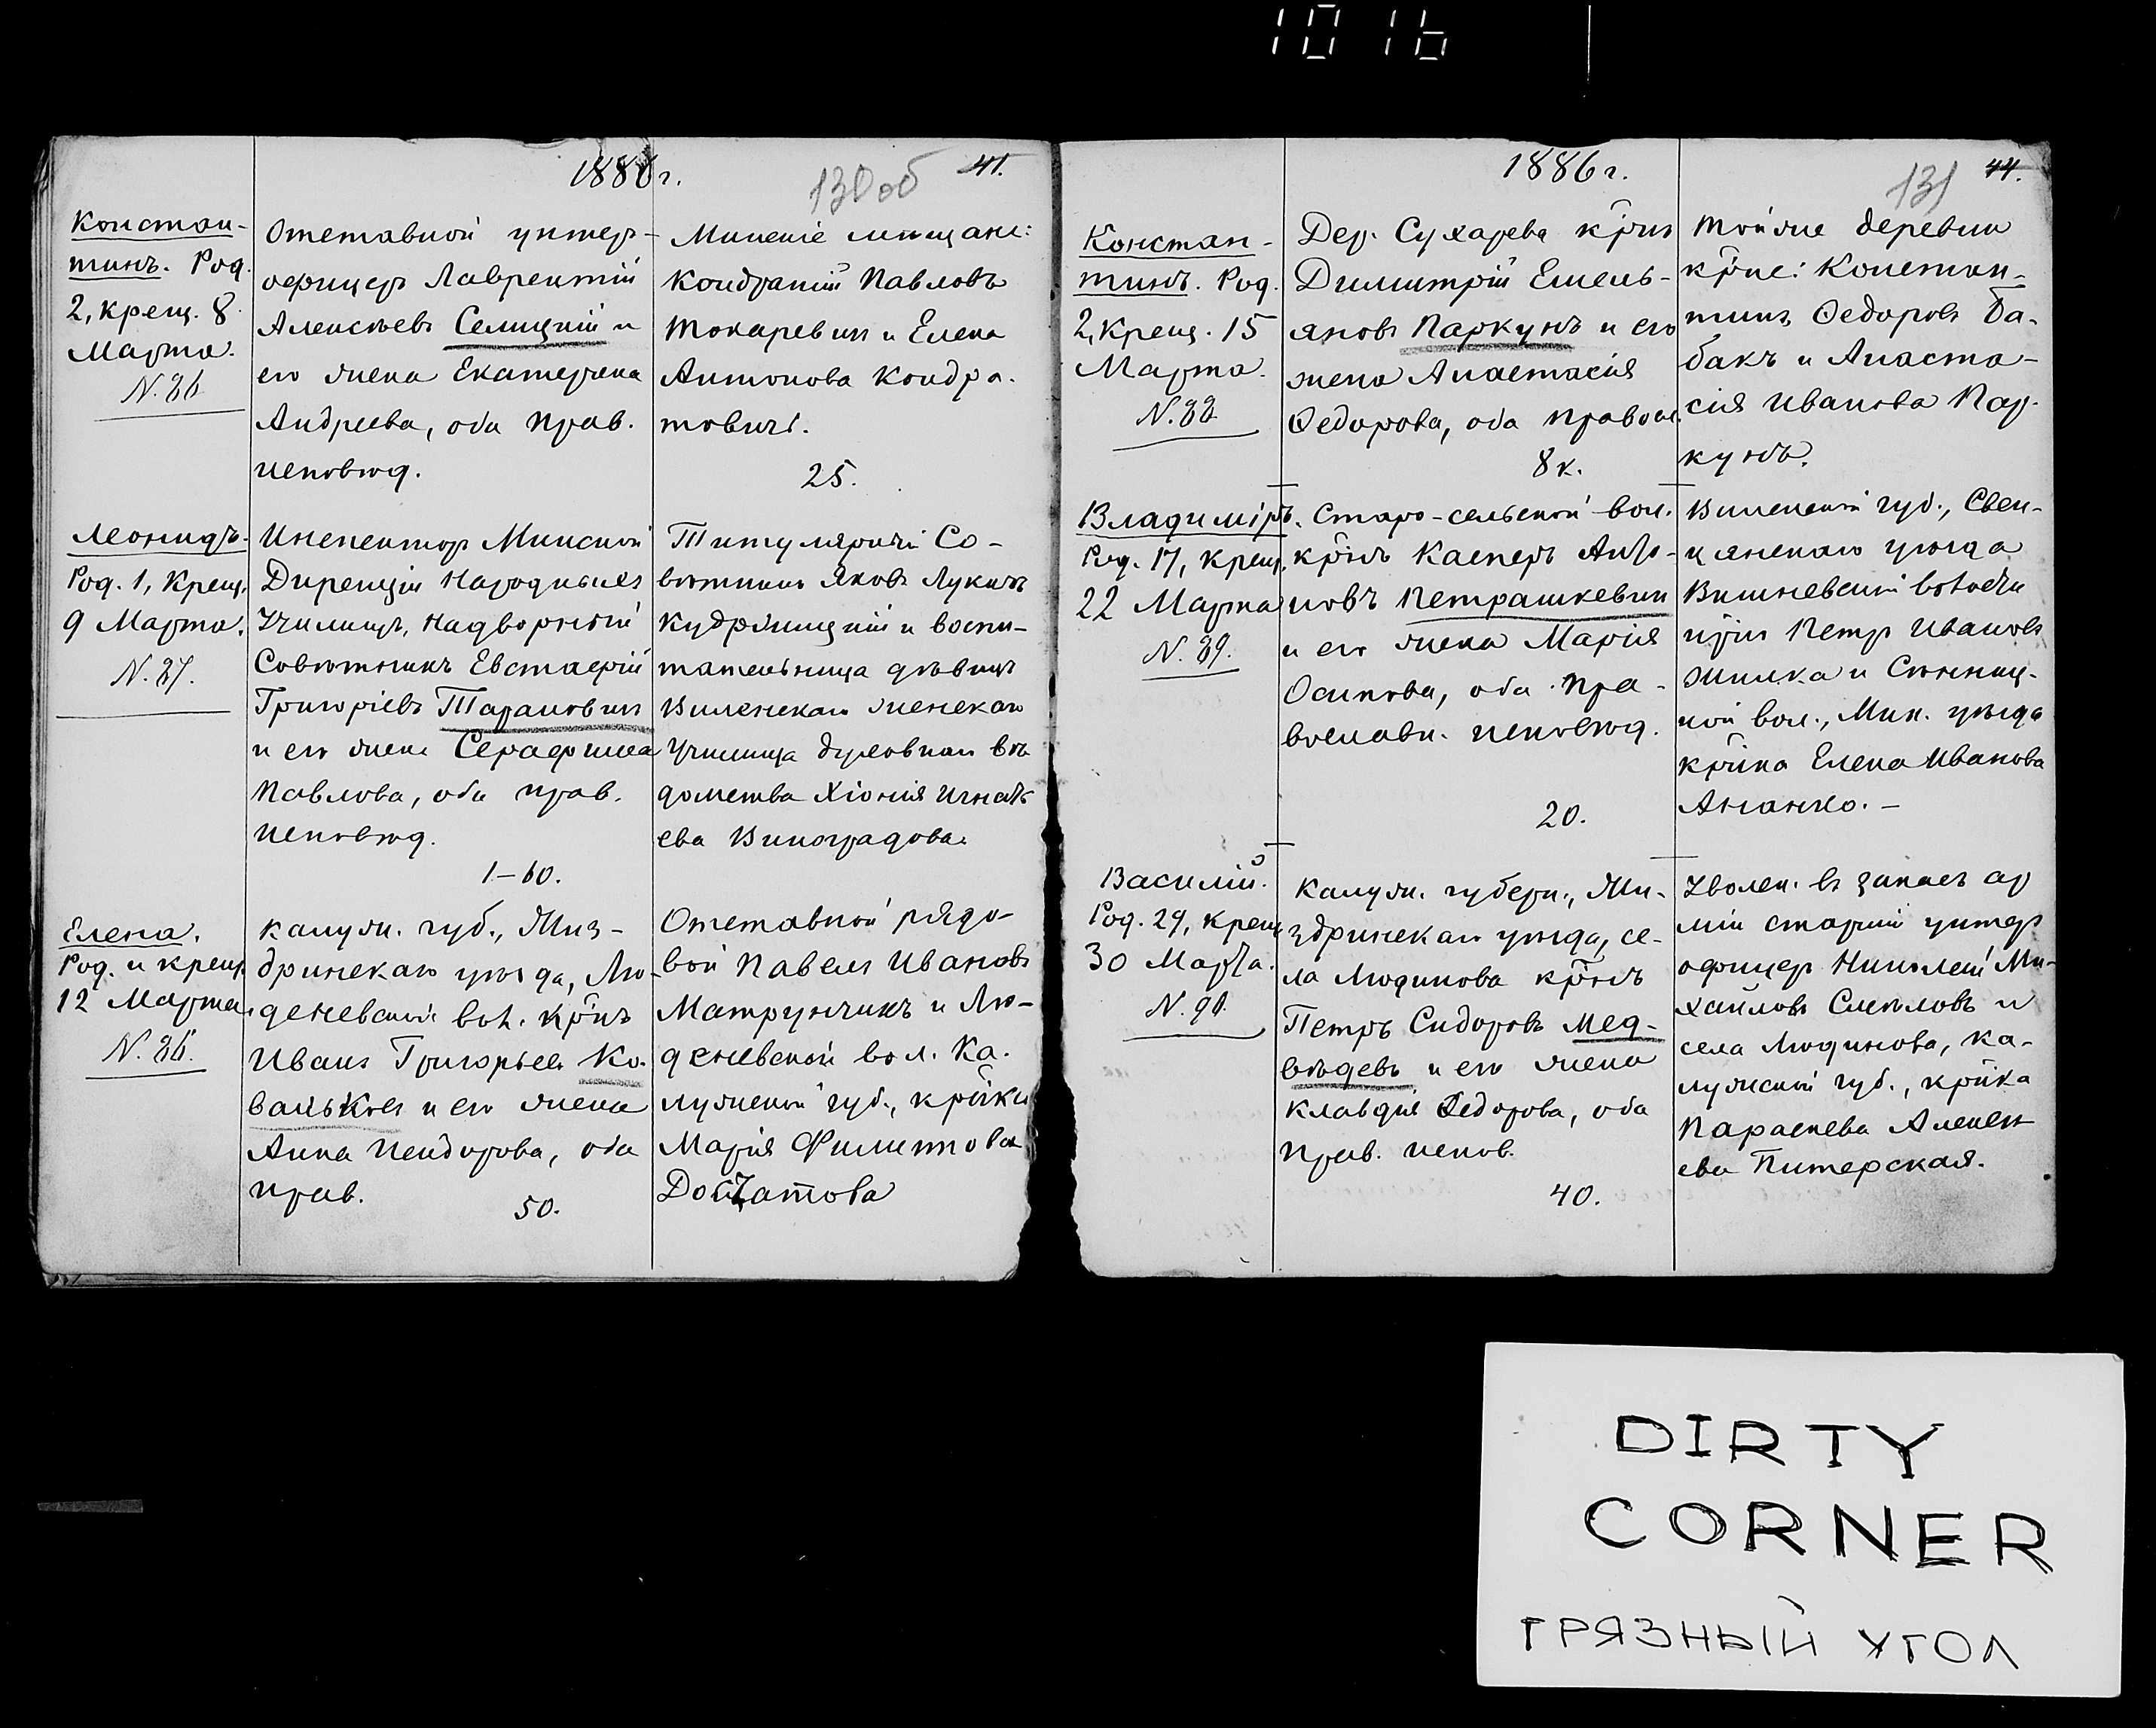 10 16
1886 г.
130об
41.
Констан-
тинъ. Род.
2, крещ. 8
Марта.
N. 86
Отставной унтеръ-
офицеръ Лаврентій
Алексѣевъ Селицкій и
его жена Екатерина
Андреева, оба прав.
исповѣд.
Минскіе мѣщане:
Кондратій Павловъ
Токаревичъ и Елена
Антонова Кондра-
товичъ.
25.
Леонидъ.
Род. 1, Крещ.
9 Марта.
N. 87.
Инспекторъ Минской
Дирекціи Народныхъ
Училищъ, Надворный
Совѣтникъ Евстафій
Григоріевъ Тарановичъ
и его жена Серафима
Павлова, оба прав.
исповѣд.
1-60.
Титулярный Со-
вѣтникъ Яковъ Лукичъ
Кудрицкій и воспи-
тательница дѣвицъ
Виленскаго женскаго
Училища духовнаго вѣ
домства Хіонія Игнать
ева Виноградова.
Елена.
Род. и крещ.
12 Марта.
N. 88.
Калуж. губ., Жиз-
дринскаго уѣзда, Лю-
деневской вол. кр̃нъ
Иванъ Григорьевъ Ко-
вальковъ и его жена
Анна Исидорова, оба
прав.
50.
Отставной рядо-
вой Павелъ Ивановъ
Матрунчикъ и Лю-
деневской вол. Ка-
лужской губ., кр̃нка
Марія Филиппова
1886 г.
131
44.
Констан-
тинъ. Род.
2, Крещ. 15
Марта.
N. 88
Дер. Сухарева кр̃нъ
Димитрій Емель-
яновъ Паркунъ и его
жена Анастасія
Ѳедорова, оба правосл.
8 к.
Той же деревни
кр̃не: Констан-
тинъ Ѳедоровъ Ба-
бакъ и Анаста-
сія Иванова Пар-
кунъ.
Владиміръ.
Род. 17, крещ.
22 Марта
N. 89.
Старо-сельской вол.
кр̃нъ Касперъ Анто-
новъ Петрашкевич
и его жена Марія
Осипова, оба пра-
вославн. исповѣд.
20.
Виленской губ., Свен-
цянскаго уѣзда
Вишневской волости
кр̃нъ Петръ Ивановъ
Жилка и Сѣнниц-
кой вол., Мин. уѣзда
кр̃нка Елена Иванова
Ананко. -
Василій.
Род. 29, крещ.
30 Марта.
N. 90.
Калуж. губерн., Жи-
здринскаго уѣзда, се-
ла Людинова кр̃нъ
Петръ Сидоровъ Мед-
вѣдевъ и его жена
Клавдія Ѳедорова, оба
прав. испов.
40.
Уволен. въ запасъ ар
міи старшій унтеръ
офицеръ Николай Ми-
хайловъ Смѣловъ и
села Людинова, Ка-
лужской губ., кр̃нка
Параскева Алексѣ
ева Питерская.
DIRTY
CORNER
ГРЯЗНЫЙ УГОЛ